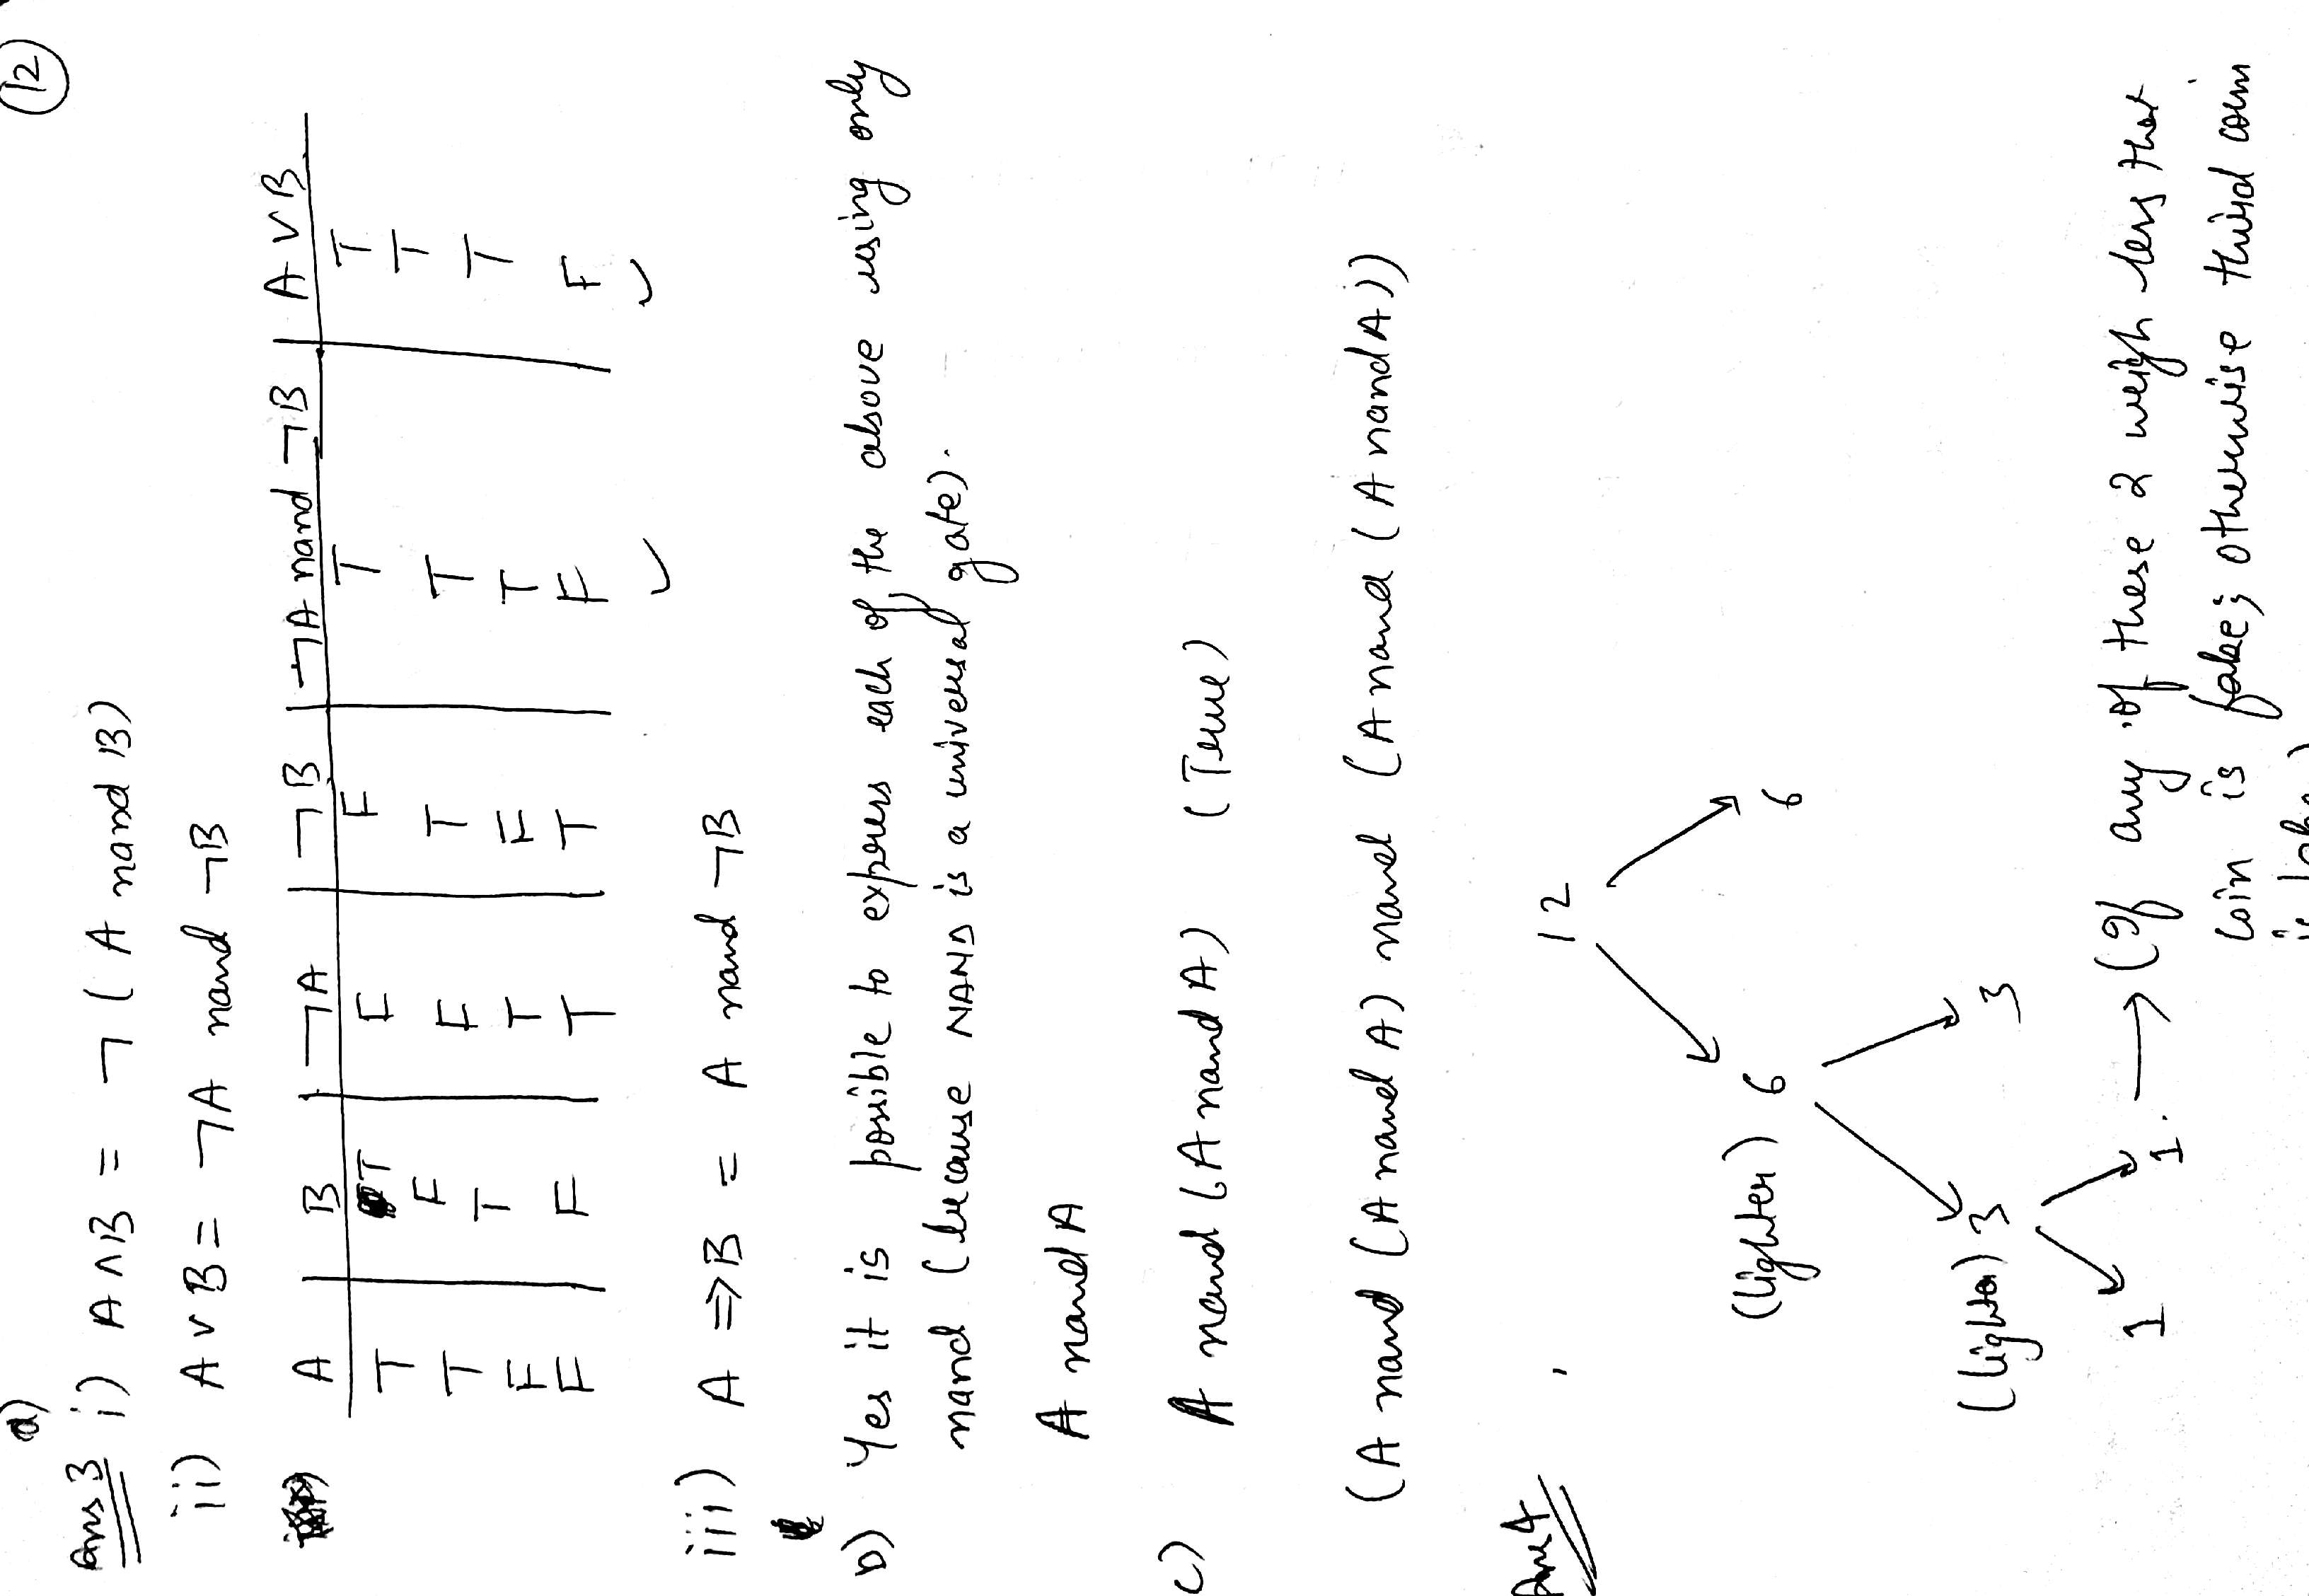 12
a)
Ans 3 i) A ∧ B = ¬ (A nand B)
ii) A ∨ B = ¬A nand ¬B
A | B | ¬A | ¬B | ¬A nand ¬B | A ∨ B
T T F F T T
T F F T T T
F T T F T T
F F T T F F
✓ ✓
iii) A => B = A nand ¬B
b) Yes it is possible to express each of the above using only
nand (because NAND is a universal gate).
A nand A
c) A nand (A nand A) (True)
(A nand (A nand A) nand (A nand (A nand A))
Ans 4
12
(lighter) 6 6
(lighter) 3 3
1 1. → (If any of these 2 weigh less that
coin is fake; otherwise third coin
is fake)